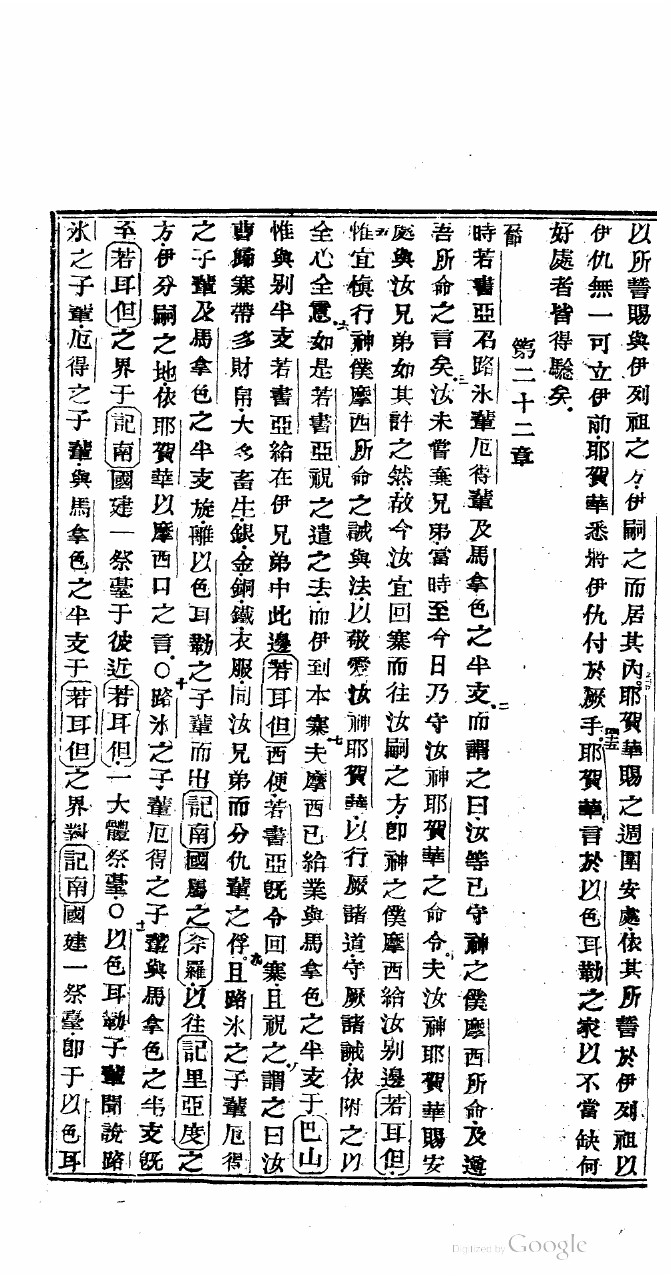 以所誓賜與伊列祖之方伊嗣之而居其內耶賀華賜之週圍安處依其所誓於伊列祖以
伊仇無一可立伊前耶賀華悉將伊仇付於厥手耶賀華言於以色耳勒之家以不當缺何
好處者皆得騐矣
第二十二章
時若書亞召路氷輩厄得輩及馬拿色之半支而謂之曰汝等已守神之僕摩西所命及遵
吾所命之言矣汝未嘗棄兄弟當時至今日乃守汝神耶賀華之命令夫汝神耶賀華賜安
處與汝兄弟如其許之然故今汝宜回寨而往汝嗣之方即神之僕摩西給汝別邊若耳但
惟宜愼行神僕摩西所命之誡與法以敬愛汝神耶賀華以行厥諸道守厥諸誡依附之以
全心全意如是若書亞祝之遣之去而伊到本寨夫摩西已給業與馬拿色之半支于巴山
惟與别半支若書亞給在伊兄弟中此邊若耳但西便若書亞旣令回寨且祝之謂之曰汝
曹歸寨帶多財帛大多畜生銀金銅鐵衣服同汝兄弟而分仇輩之俘且路氷之子輩厄得
之子輩及馬拿色之半支旋離以色耳勒之子輩而出記南國屬之示羅以往記里亞度之
方伊分嗣之地依耶賀華以摩西口之言〇路氷之子輩厄得之子輩與馬拿色之半支旣
至若耳但之界于記南國建一祭臺于彼近若耳但一大體祭臺〇以色耳勒子輩聞說路
氷之子輩厄得之子輩與馬拿色之半支于若耳但之界對記南國建一祭臺即于以色耳
Digitized by Google